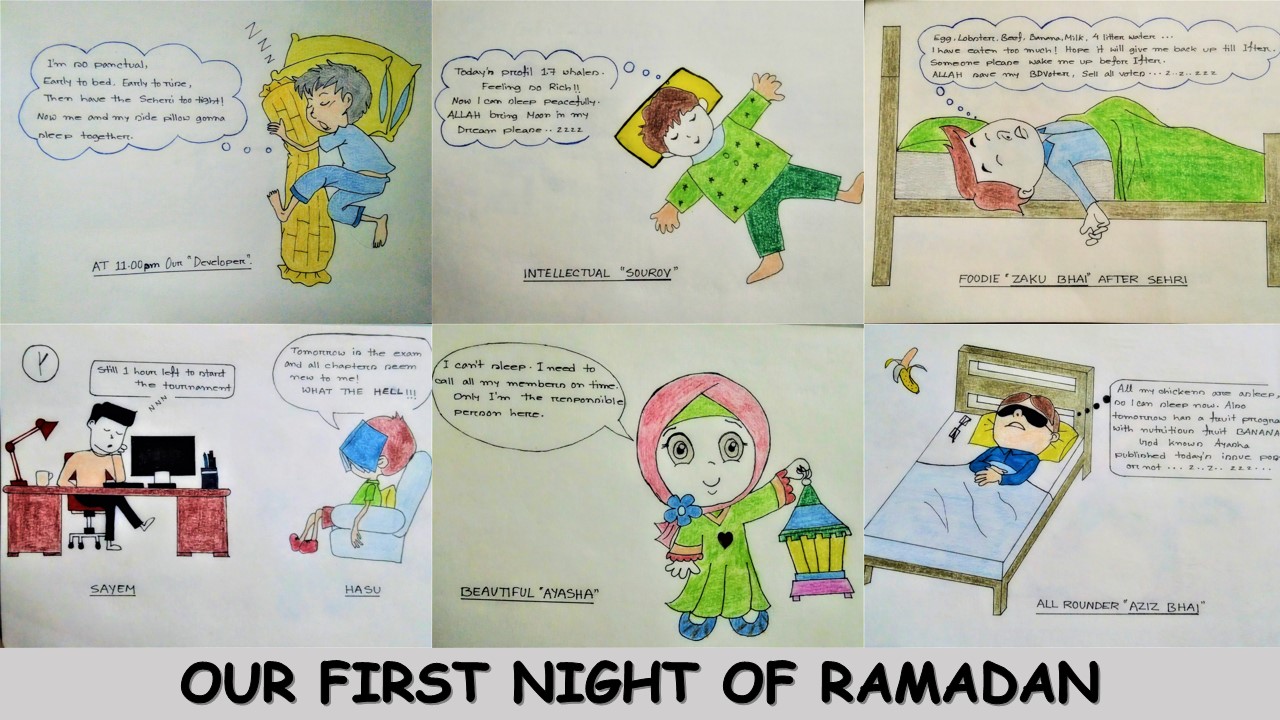 I'm so punctual,
Early to bed, Early to rise,
Then have the Seheri too tight!
Now me and my side pillow gonna
sleep together.
Z Z Z
AT 11.00pm Our "Developer".
Today's profil 17 whales.
Feeling so Rich!!
Now I can sleep peacefully.
ALLAH bring Moon in my
Dream please .. zzzz
INTELLECTUAL "SOUROV"
Egg, Lobster, Beef, Banana, Milk, 4 litter water ...
I have eaten too much! Hope it will give me back up till Ifter.
Someone please wake me up before Ifter.
ALLAH save my BDVoter, Sell all votes ... z..z..zzz
FOODIE "ZAKU BHAI" AFTER SEHRI
Still 1 hour left to start
the tournament
zzz
SAYEM
Tomorrow is the exam
and all chapters seem
new to me!
WHAT THE HELL!!!
HASU
I can't sleep. I need to
call all my members on time.
Only I'm the responsible
person here.
BEAUTIFUL "AYASHA"
All my chickens are asleep
so I can sleep now. Also
tomorrow has a fruit progra
with nutritious fruit BANANA
God known Ayasha
published today's issue pos
or not ... z..z.. zzz...
ALL ROUNDER "AZIZ BHAI"
OUR FIRST NIGHT OF RAMADAN